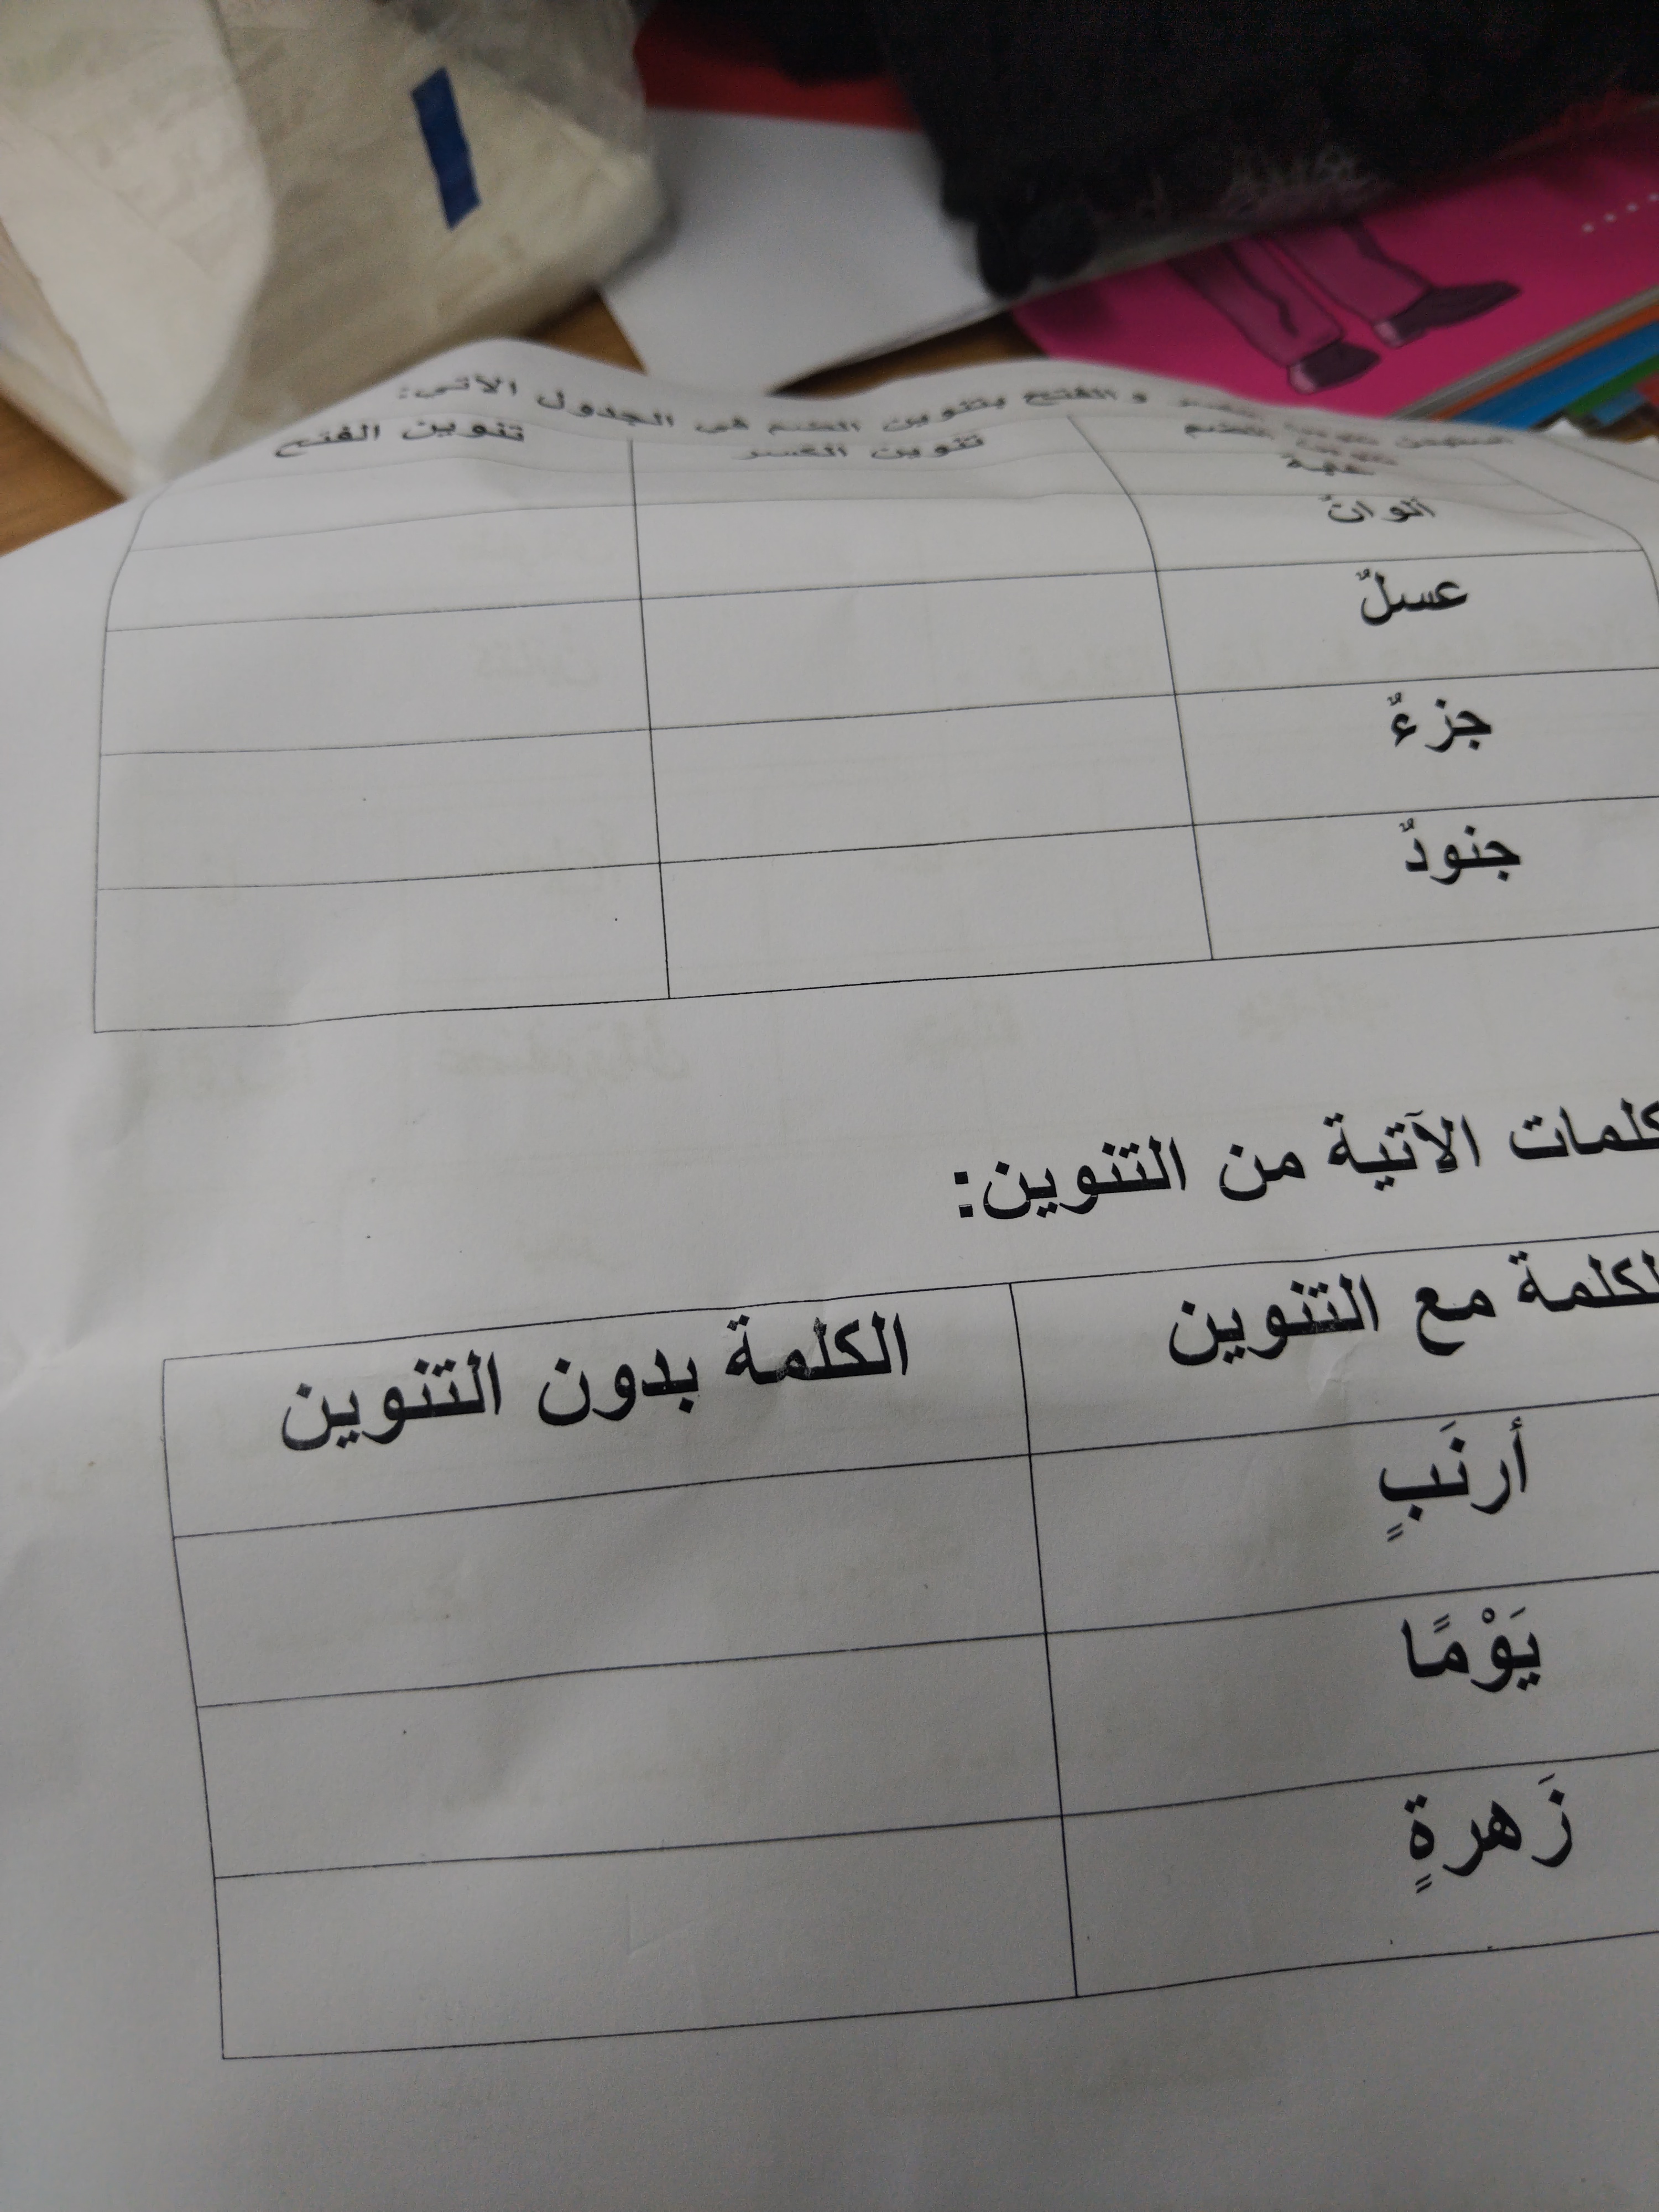 و الفتح بتنوين الضم في الجدول الآتي:
تنوين الضم تنوين الكسر تنوين الفتح
ألوانٌ
عسلٌ
جزءٌ
جنودٌ
كلمات الآتية من التنوين:
لكلمة مع التنوين الكلمة بدون التنوين
أرنَبٍ
يَوْمًا
زَهرةٍ